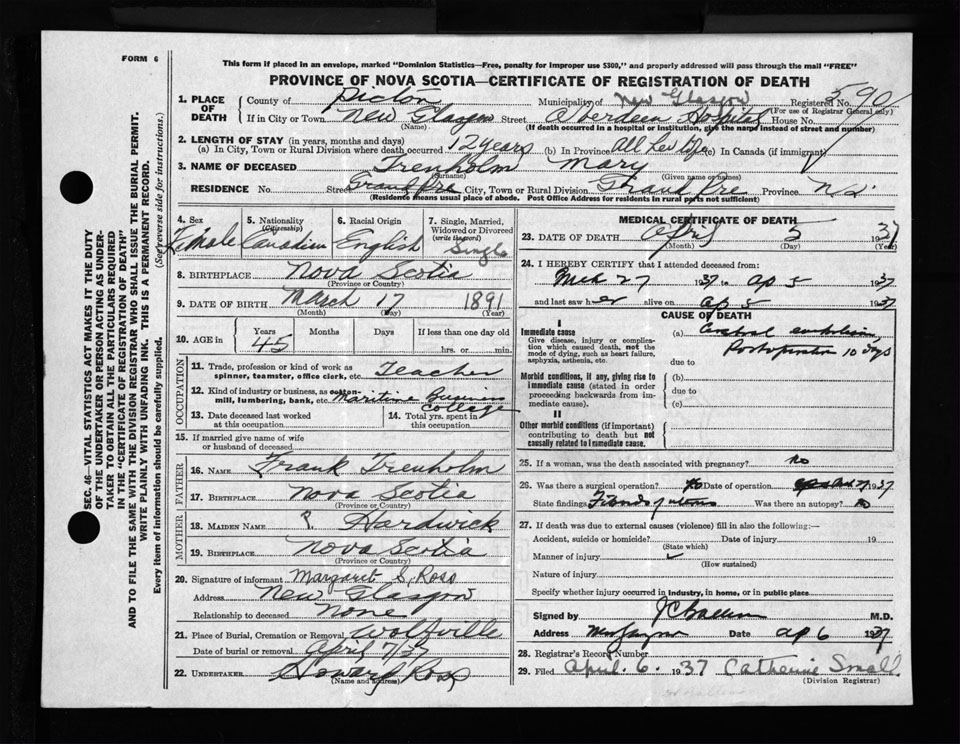 FORM 6
This form if placed in an envelope, marked "Dominion Statistics—Free, penalty for improper use $300," and properly addressed will pass through the mail "FREE"
PROVINCE OF NOVA SCOTIA—CERTIFICATE OF REGISTRATION OF DEATH
SEC. 46—VITAL STATISTICS ACT MAKES IT THE DUTY
OF THE UNDERTAKER OR PERSON ACTING AS UNDER-
TAKER TO OBTAIN ALL THE PARTICULARS REQUIRED
IN THE "CERTIFICATE OF REGISTRATION OF DEATH"
AND TO FILE THE SAME WITH THE DIVISION REGISTRAR WHO SHALL ISSUE THE BURIAL PERMIT.
WRITE PLAINLY WITH UNFADING INK. THIS IS A PERMANENT RECORD.
Every item of information should be carefully supplied. (See reverse side for instructions.)
1. PLACE OF DEATH
County of Pictou Municipality of New Glasgow Registered No. 590
(For use of Registrar General only)
If in City or Town New Glasgow Street Aberdeen Hospital House No.
(Name) (If death occurred in a hospital or institution, give the name instead of street and number)
2. LENGTH OF STAY (in years, months and days)
(a) In City, Town or Rural Division where death occurred 12 years (b) In Province All her life (c) In Canada (if immigrant)
3. NAME OF DECEASED Trenholm Mary
(Surname) (Given name or names)
RESIDENCE No. Street Grand Pre City, Town or Rural Division Grand Pre Province N.S.
(Residence means usual place of abode. Post Office Address for residents in rural parts not sufficient)
4. Sex Female
5. Nationality (Citizenship) Canadian
6. Racial Origin English
7. Single, Married, Widowed or Divorced (write the word) Single
8. BIRTHPLACE Nova Scotia
(Province or Country)
9. DATE OF BIRTH March 17 1891
(Month) (Day) (Year)
10. AGE in Years 45 Months Days If less than one day old hrs. or min.
OCCUPATION
11. Trade, profession or kind of work as spinner, teamster, office clerk, etc. Teacher
12. Kind of industry or business, as cotton-mill, lumbering, bank, etc. Maritime Business College
13. Date deceased last worked at this occupation
14. Total yrs. spent in this occupation
15. If married give name of wife or husband of deceased
FATHER
16. NAME Frank Trenholm
17. BIRTHPLACE Nova Scotia
(Province or Country)
MOTHER
18. MAIDEN NAME ? Hardwick
19. BIRTHPLACE Nova Scotia
(Province or Country)
20. Signature of informant Margaret S. Ross
Address New Glasgow
Relationship to deceased None
21. Place of Burial, Cremation or Removal Wolfville
Date of burial or removal April 7/37
22. UNDERTAKER Howard Ross
(Name and address)
MEDICAL CERTIFICATE OF DEATH
23. DATE OF DEATH April 5 1937
(Month) (Day) (Year)
24. I HEREBY CERTIFY that I attended deceased from:
Mch 27 1937 to Ap 5 1937
and last saw her alive on Ap 5 1937
CAUSE OF DEATH
I
Immediate cause (a) Cerebral embolism
Give disease, injury or complication which caused death, not the mode of dying, such as heart failure, asphyxia, asthenia, etc.
Postoperative 10 days
due to
Morbid conditions, if any, giving rise to immediate cause (stated in order proceeding backwards from immediate cause). (b)
due to
(c)
II
Other morbid conditions (if important) contributing to death but not causally related to immediate cause.
25. If a woman, was the death associated with pregnancy? No
26. Was there a surgical operation? Date of operation 27 1937
State findings Fibroids of uterus Was there an autopsy? No
27. If death was due to external causes (violence) fill in also the following:—
Accident, suicide or homicide? Date of injury 19
(State which)
Manner of injury
(How sustained)
Nature of injury
Specify whether injury occurred in industry, in home, or in public place
Signed by M.D.
Address New Glasgow Date Ap 6 1937
28. Registrar's Record Number
29. Filed April 6 1937 Catherine Small
(Division Registrar)